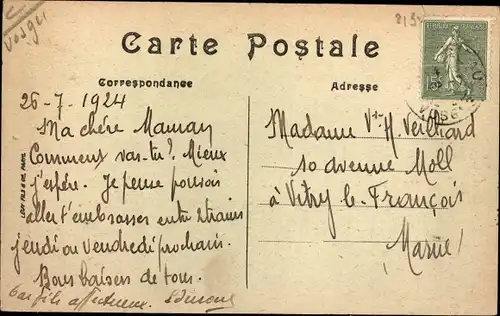 Vosges
Carte Postale
Correspondance
Adresse
REPUBLIQUE FRANÇAISE
15
26-7-1924
Ma chère Maman
Comment vas-tu? Mieux
j'espère. Je pense pouvoir
aller t'embrasser entre 2 trains
jeudi ou vendredi prochain.
Bons baisers de tous.
Madame Vve H. Veilliard
10 avenue Moll
à Vitry le François
Marne
LEVY FILS & CIE, PARIS